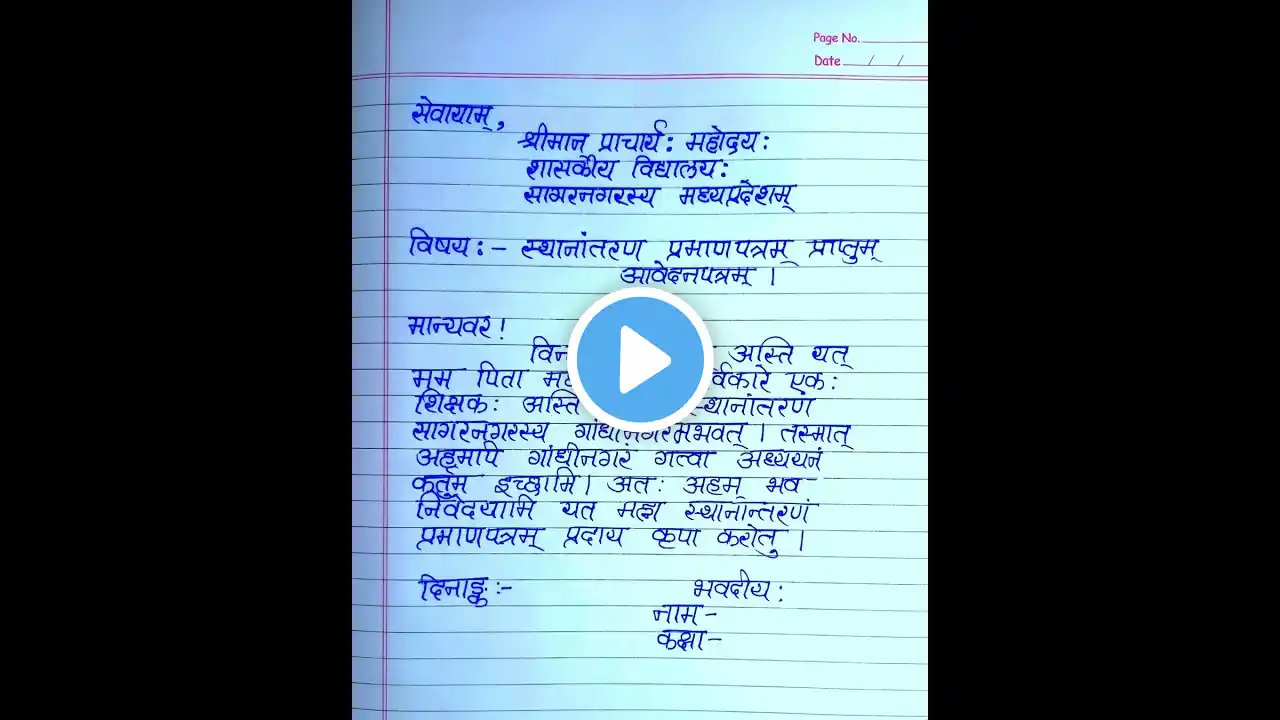 Page No.
Date / /
सेवायाम्,
श्रीमान् प्राचार्य: महोदय:
शासकीय विद्यालय:
सागरनगरस्य मध्यप्रदेशम्
विषय:- स्थानांतरण प्रमाणपत्रम् प्राप्तुम्
आवेदनपत्रम् ।
मान्यवर!
अस्ति यत्
मम पिता एक:
शिक्षक: अस्ति
सागरनगरस्य गांधीनगरमभवत् । तस्मात्
अहमपि गांधीनगरं गत्वा अध्ययनं
कर्तुम् इच्छामि। अत: अहम् भव-
निवेदयामि यत मह्य स्थानान्तरणं
प्रमाणपत्रम् प्रदाय कृपा करोतु ।
दिनाङ्क:- भवदीय:
नाम-
कक्षा-